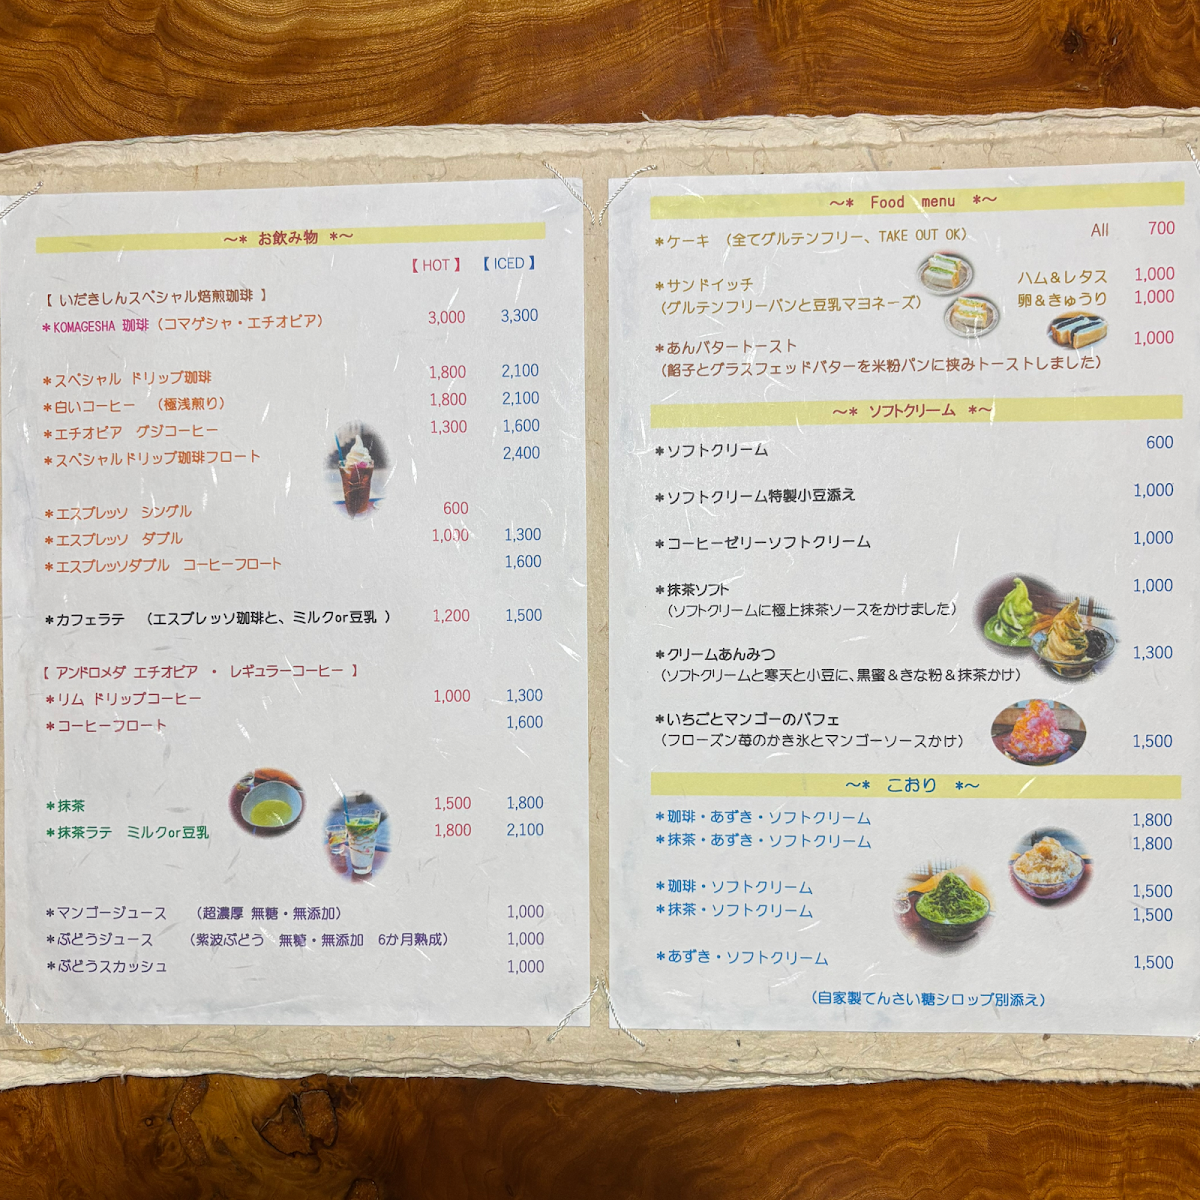 ～* お飲み物 *～
【 HOT 】 【 ICED 】
【 いだきしんスペシャル焙煎珈琲 】
*KOMAGESHA 珈琲（コマゲシャ・エチオピア） 3,000 3,300
*スペシャル ドリップ珈琲 1,800 2,100
*白いコーヒー （極浅煎り） 1,800 2,100
*エチオピア グジコーヒー 1,300 1,600
*スペシャルドリップ珈琲フロート 2,400
*エスプレッソ シングル 600
*エスプレッソ ダブル 1,000 1,300
*エスプレッソダブル コーヒーフロート 1,600
*カフェラテ （エスプレッソ珈琲と、ミルクor豆乳 ） 1,200 1,500
【 アンドロメダ エチオピア ・ レギュラーコーヒー 】
*リム ドリップコーヒー 1,000 1,300
*コーヒーフロート 1,600
*抹茶 1,500 1,800
*抹茶ラテ ミルクor豆乳 1,800 2,100
*マンゴージュース （超濃厚 無糖・無添加） 1,000
*ぶどうジュース （紫波ぶどう 無糖・無添加 6か月熟成） 1,000
*ぶどうスカッシュ 1,000
～* Food menu *～
*ケーキ （全てグルテンフリー、TAKE OUT OK） All 700
*サンドイッチ ハム＆レタス 1,000
（グルテンフリーパンと豆乳マヨネーズ） 卵＆きゅうり 1,000
*あんバタートースト 1,000
（餡子とグラスフェッドバターを米粉パンに挟みトーストしました）
～* ソフトクリーム *～
*ソフトクリーム 600
*ソフトクリーム特製小豆添え 1,000
*コーヒーゼリーソフトクリーム 1,000
*抹茶ソフト 1,000
（ソフトクリームに極上抹茶ソースをかけました）
*クリームあんみつ 1,300
（ソフトクリームと寒天と小豆に、黒蜜＆きな粉＆抹茶かけ）
*いちごとマンゴーのパフェ
（フローズン苺のかき氷とマンゴーソースかけ） 1,500
～* こおり *～
*珈琲・あずき・ソフトクリーム 1,800
*抹茶・あずき・ソフトクリーム 1,800
*珈琲・ソフトクリーム 1,500
*抹茶・ソフトクリーム 1,500
*あずき・ソフトクリーム 1,500
（自家製てんさい糖シロップ別添え）